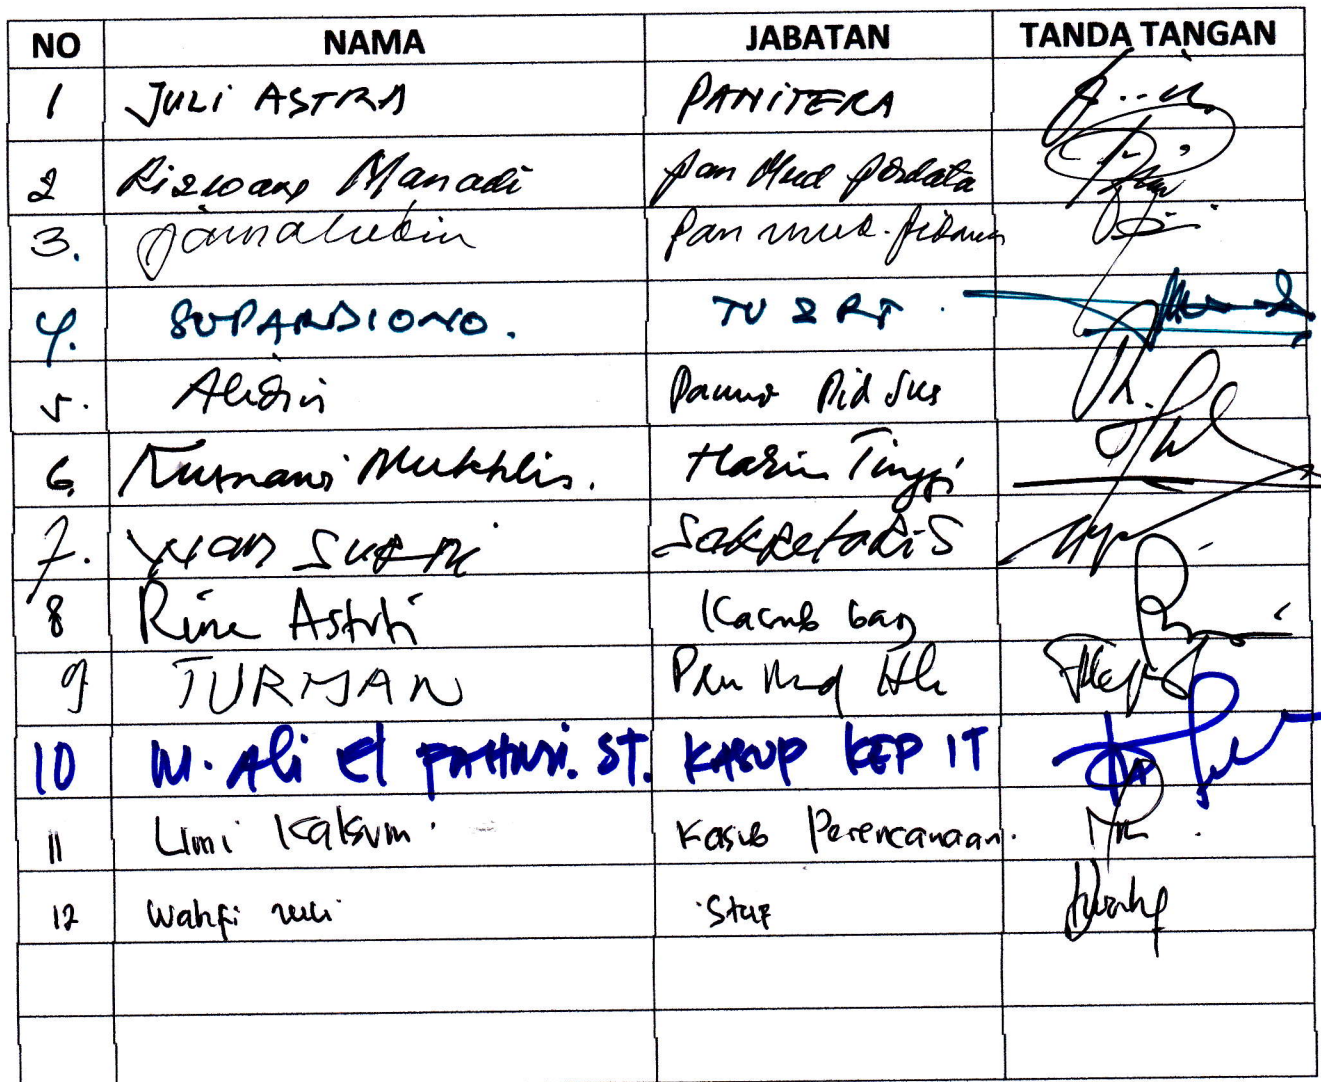 NO NAMA JABATAN TANDA TANGAN
1 JULI ASTRA PANITERA
2 Rizwans Manadi pan Mud perdata
3. Jamaluddin pan mud. pidana
4. SUPARDIONO. TU & RT.
5. Panmud Pid Sus
6 Kusnawi Mukhlis. Hakim Tinggi
7. WAN SUKRI Sekretaris
8 Rina Astuti Kasub bag
9 TURMAN Pan Mud
10 M. Ali el FAHMI. ST. KASUB KEP IT
11 Umi Kalsum. Kasub Perencanaan.
12 Wahfi Staf